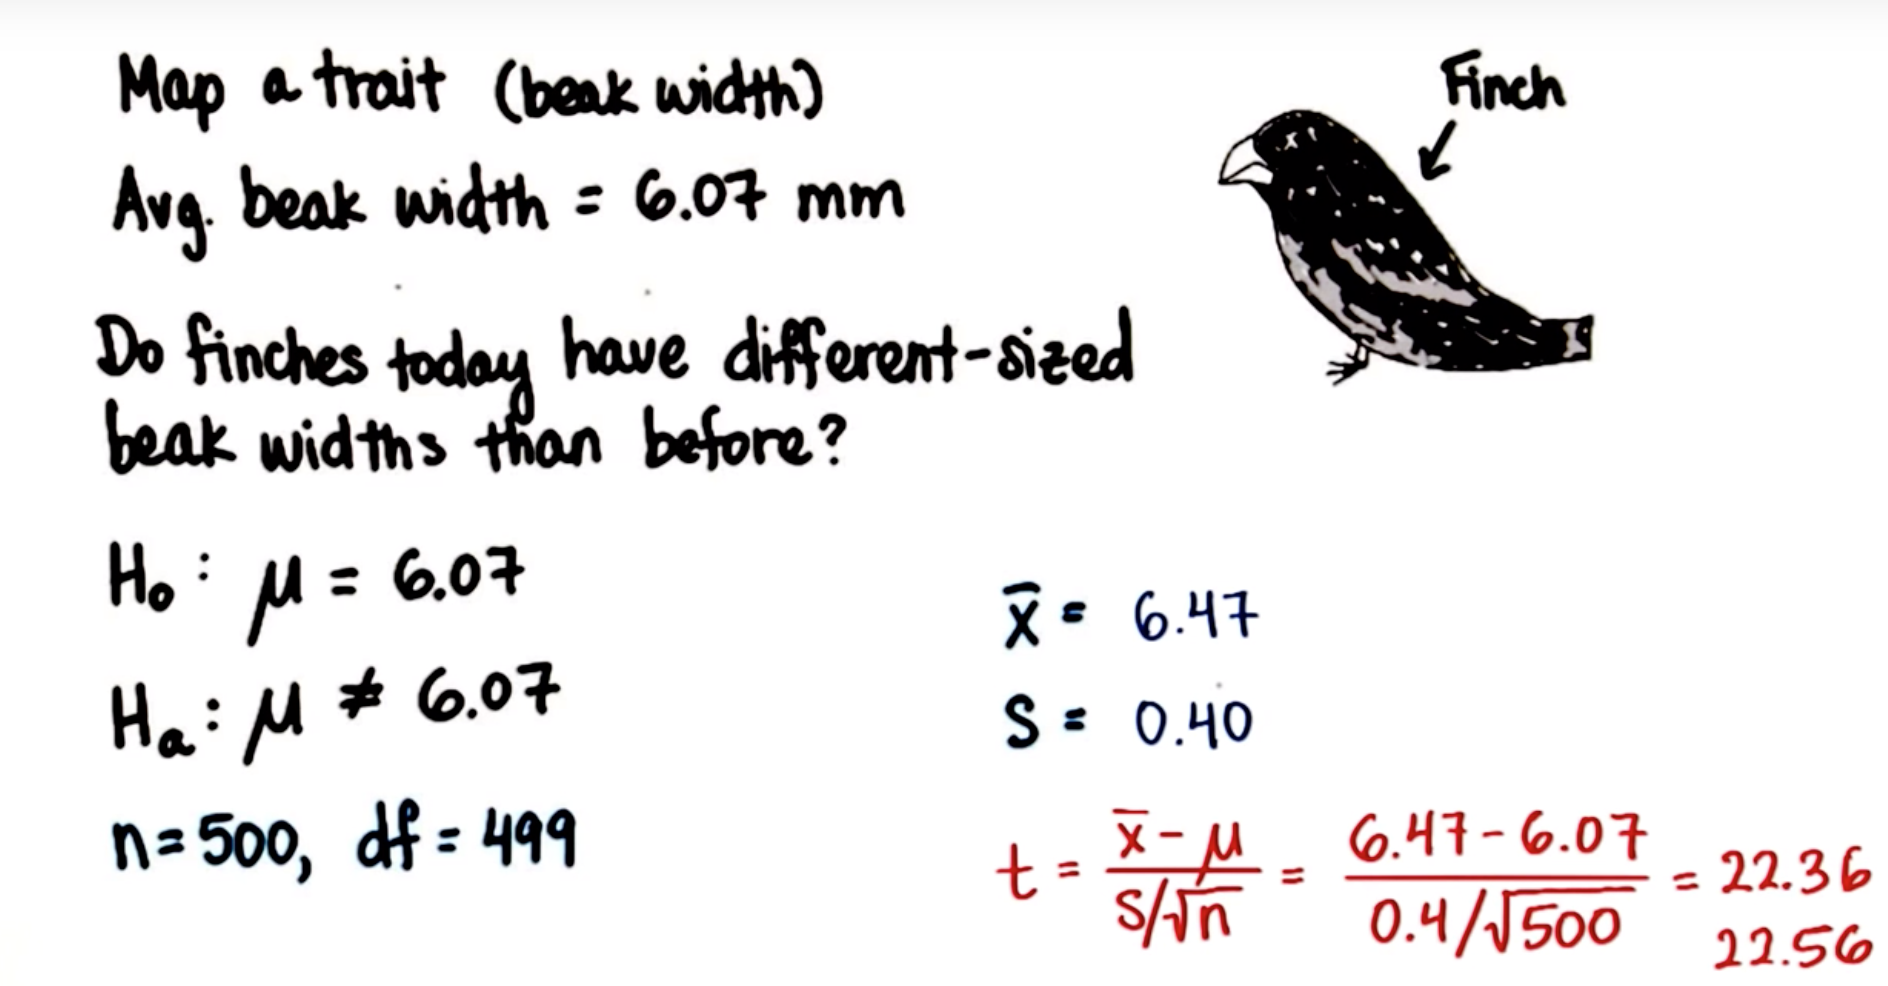 Map a trait (beak width)
Finch
Avg. beak width = 6.07 mm
Do finches today have different-sized
beak widths than before?
H₀ : μ = 6.07
Hₐ : μ ≠ 6.07
n = 500, df = 499
x̄ = 6.47
S = 0.40
t = (x̄ - μ)/(S/√n) = (6.47 - 6.07)/(0.4/√500) = 22.36
22.56